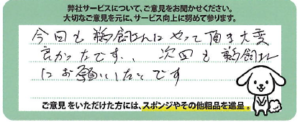 弊社サービスについて、ご意見をお聞かせください。
大切なご意見を元に、サービス向上に努めて参ります。
今回も鵜飼さんにやって頂き大変
良かったです。、次回も鵜飼さん
にお願いしたいです
ご意見をいただけた方には、スポンジやその他粗品を進呈。